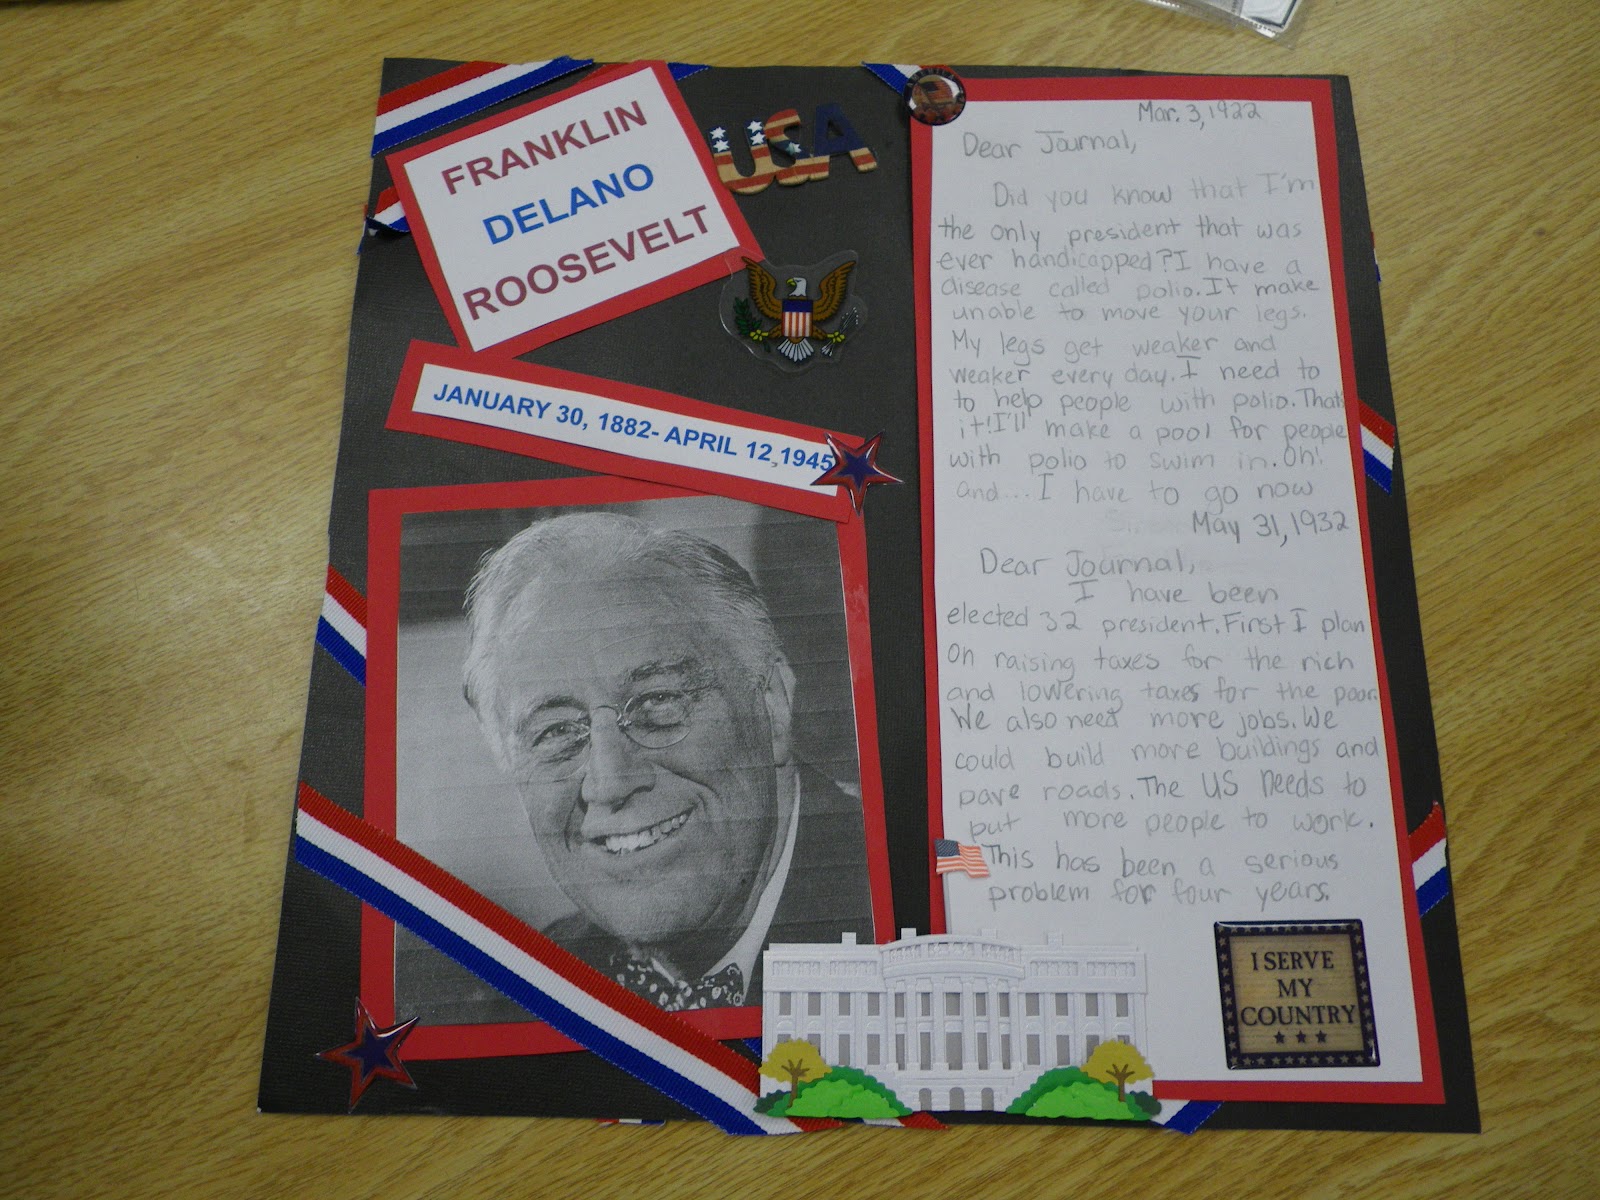 FRANKLIN
DELANO
ROOSEVELT
USA
JANUARY 30, 1882- APRIL 12,1945
Mar. 3,1922
Dear Journal,
Did you know that I'm
the only president that was
ever handicapped? I have a
disease called polio. It make
unable to move your legs.
My legs get weaker and
weaker every day. I need to
to help people with polio. Thats
it! I'll make a pool for people
with polio to swim in. Oh!
and... I have to go now
May 31,1932
Dear Journal,
I have been
elected 32 president. First I plan
on raising taxes for the rich
and lowering taxes for the poor.
We also need more jobs. We
could build more buildings and
pave roads. The US needs to
put more people to work.
This has been a serious
problem for four years.
I SERVE
MY
COUNTRY